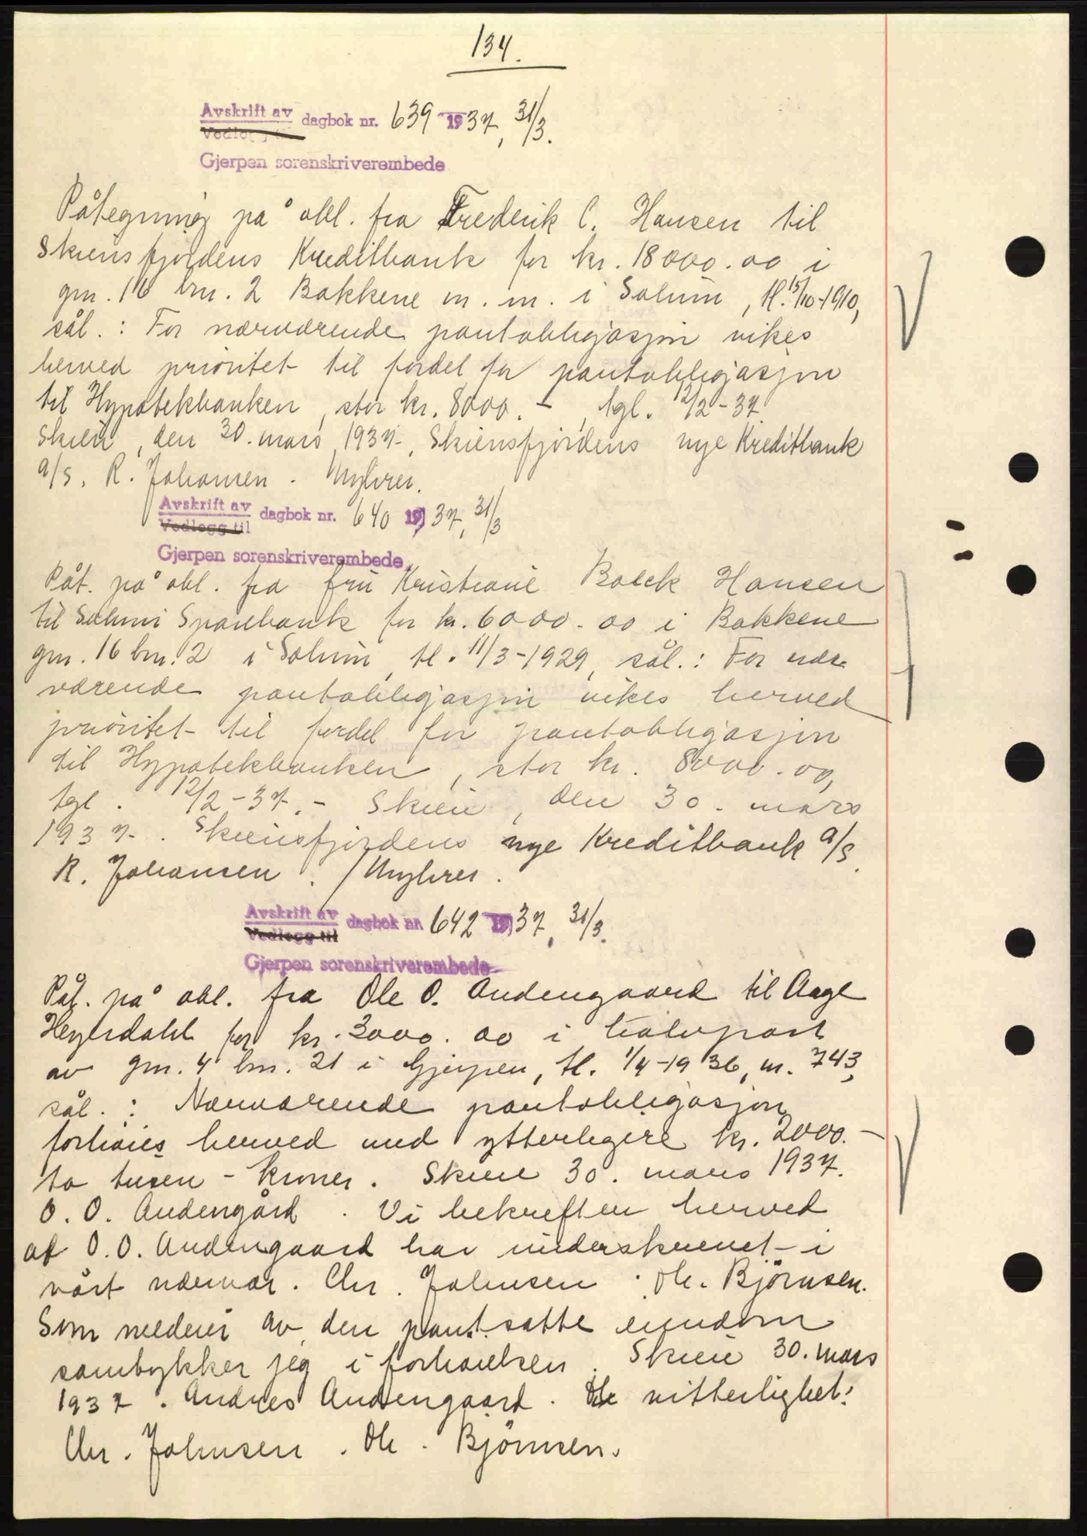 134.
Avskrift av dagbok nr. 639 1937, 31/3.
Vedlegg til
Gjerpen sorenskriverembede
Påtegning på obl. fra Frederik C. Hansen til
Skiensfjordens Kreditbank for kr. 18000.00 i
gnr. 16 bnr. 2 Bakkene m. m. i Solum, tl. 15/10-1910,
sål.: For nærværende pantobligasjon vikes
herved prioritet til fordel for pantobligasjon
til Hypotekbanken, stor kr. 8000.-, tgl. 12/2-37
Skien, den 30. mars 1937. Skiensfjordens nye Kreditbank
a/s. R. Johansen. Myhres.
Avskrift av dagbok nr. 640 1937, 31/3
Vedlegg til
Gjerpen sorenskriverembede
Påt. på obl. fra fru Kristiane Boeck Hansen
til Solum Sparebank for kr. 6000.00 i Bakkene
gnr. 16 bnr. 2 i Solum, tl. 11/3-1929, sål.: For nær-
værende pantobligasjon vikes herved
prioritet til fordel for pantobligasjon
til Hypotekbanken, stor kr. 8000.00,
tgl. 12/2-37.- Skien, den 30. mars
1937. Skiensfjordens nye Kreditbank a/s.
R. Johansen. / Myhres.
Avskrift av dagbok nr. 642 1937, 31/3.
Vedlegg til
Gjerpen sorenskriverembede
Påt. på obl. fra Ole O. Andengaard til Aage
Heyerdahl for kr. 3000.00 i halvpart
av gnr. 4 bnr. 21 i Gjerpen, tl. 1/4-1936, m. 743,
sål.: Nærværende pantobligasjon
forhøies herved med ytterligere kr. 2000.-
to tusen - kroner. Skien 30. mars 1937.
O. O. Andengård. Vi bekrefter herved
at O. O. Andengaard har underskrevet i
vårt nærvær. Chr. Johnsen. Ole. Björnsen.
Som medeier av den pantsatte eiendom
samtykker jeg i forhøielsen. Skien 30. mars
1937. Andres Andengaard. Til vitterlighet:
Chr. Johnsen. Ole. Björnsen.